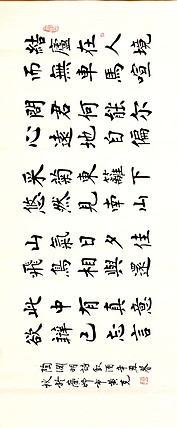 結廬在人境
而無車馬喧
問君何能尔
心遠地自偏
采菊東籬下
悠然見南山
山氣日夕佳
飛鳥相與還
此中有真意
欲辯已忘言
陶淵明詩飲酒辛丑暮
秋於